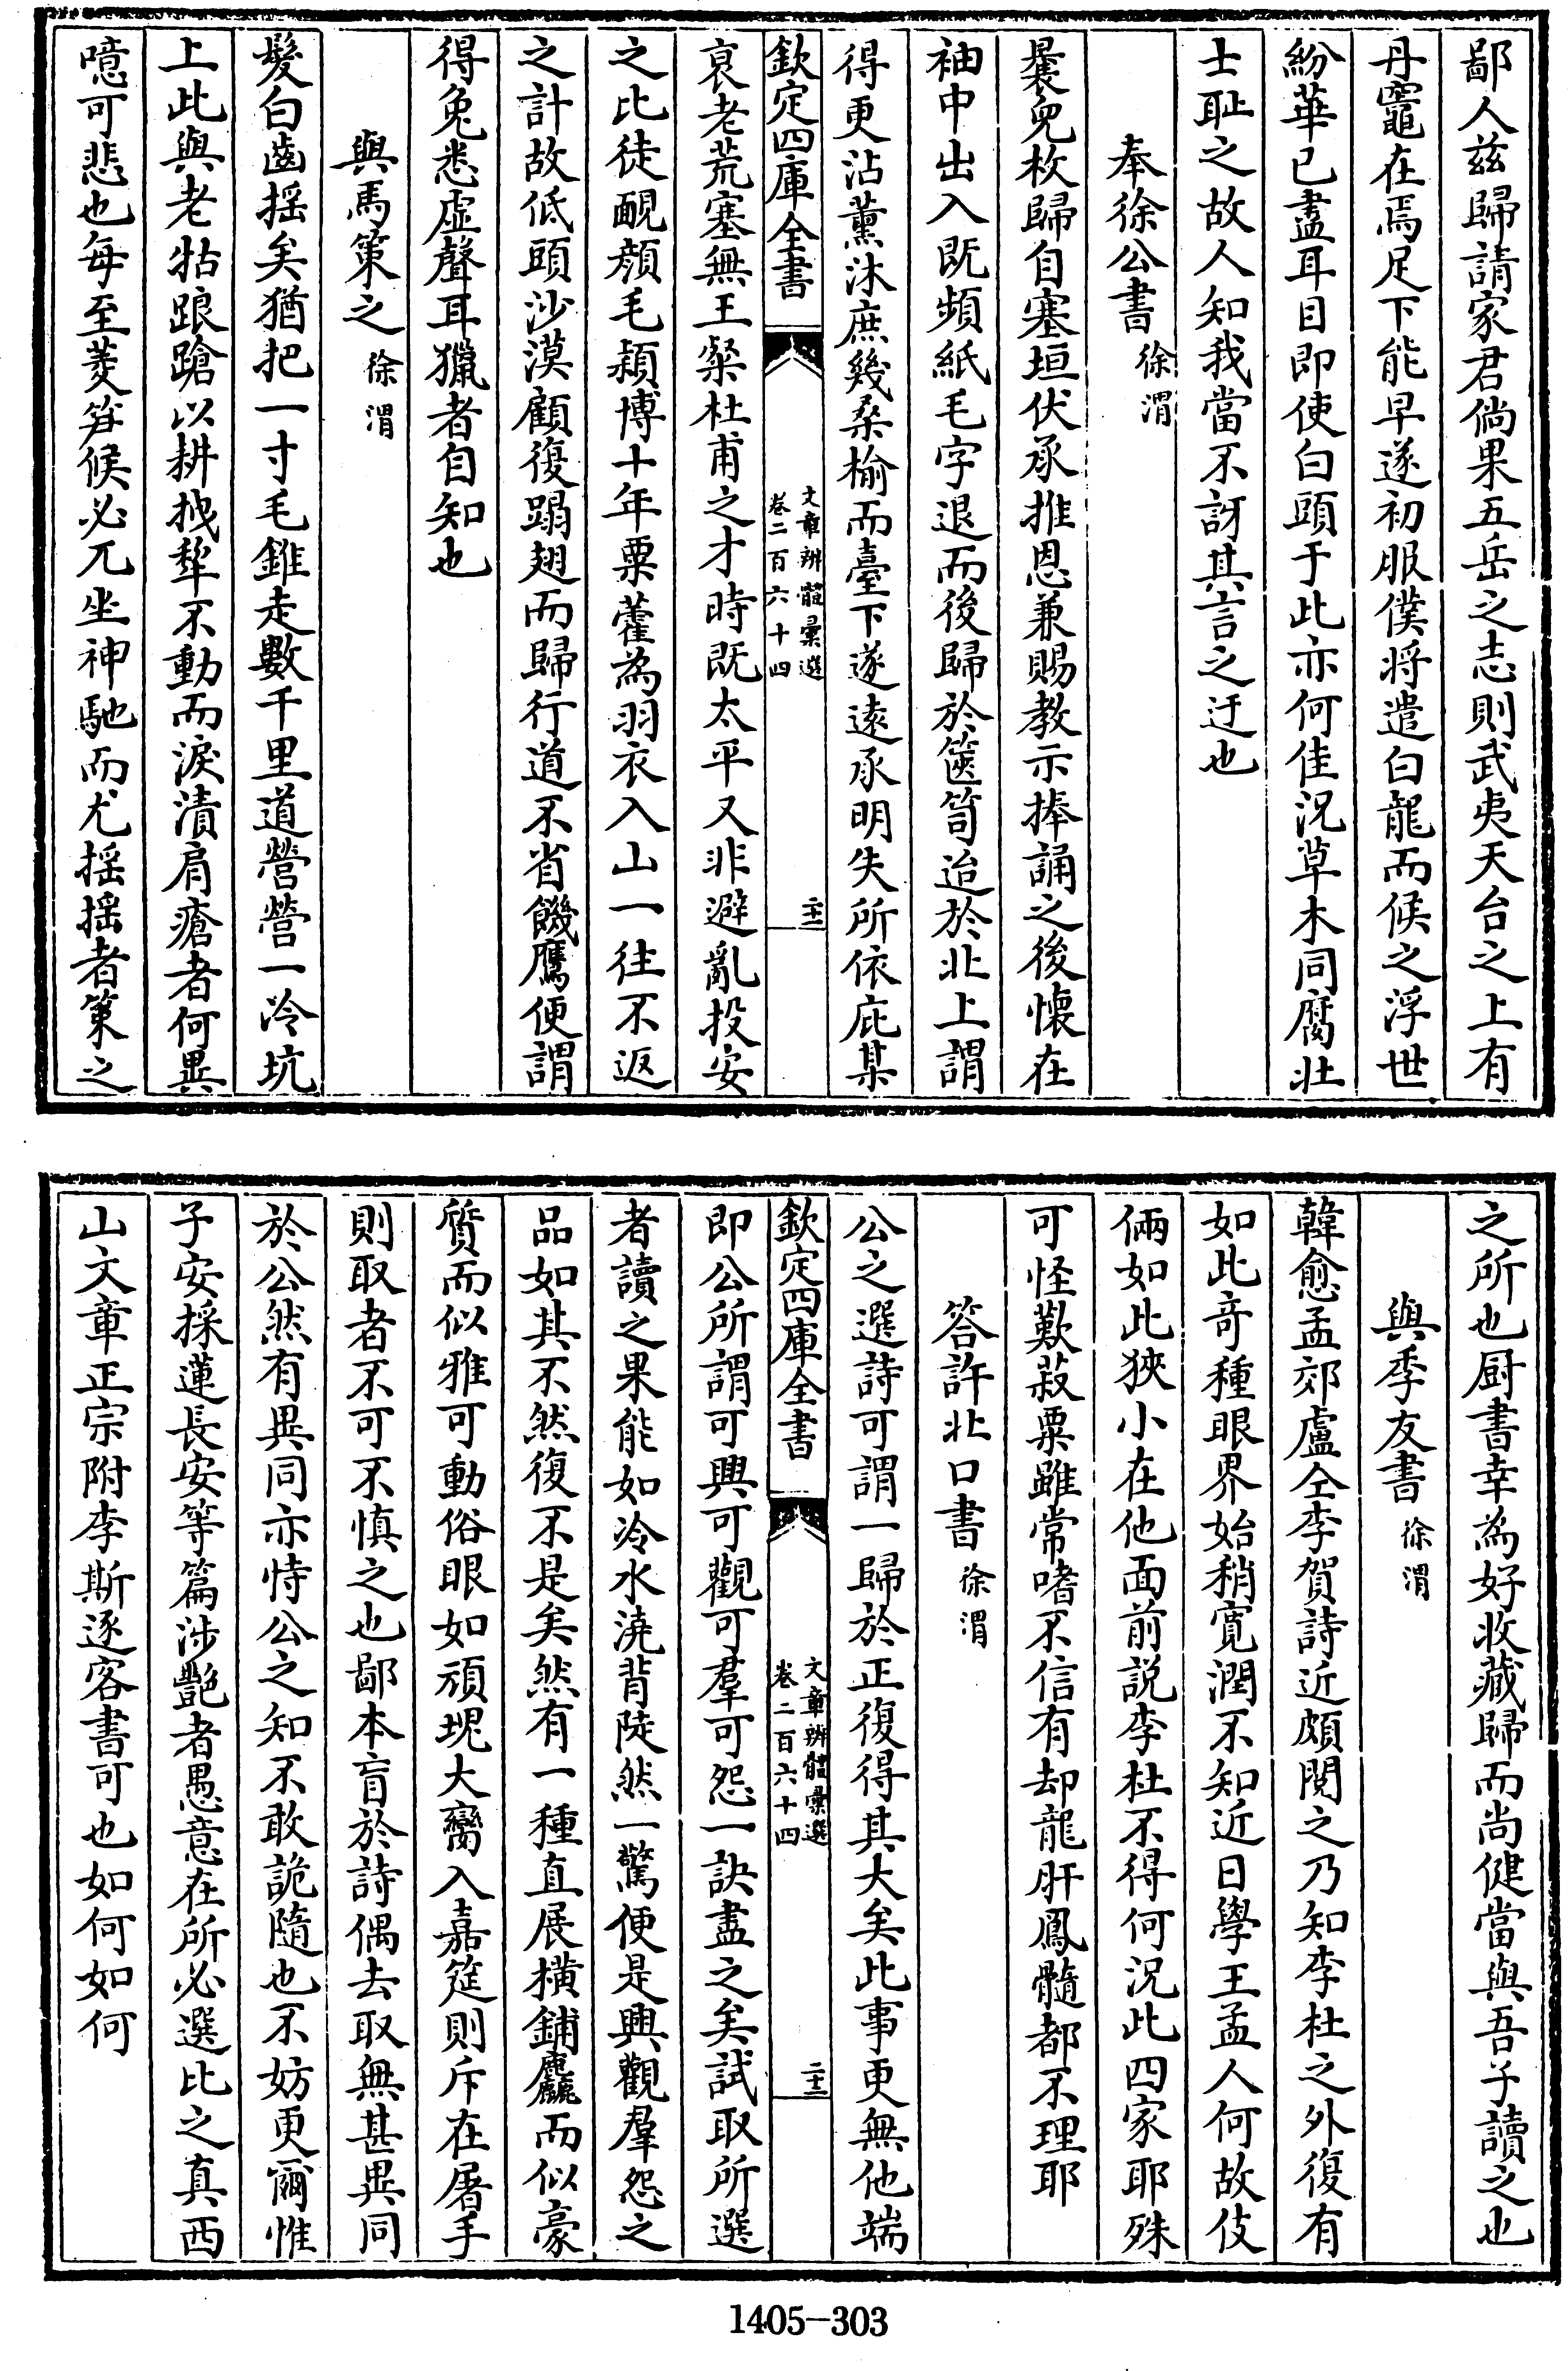 鄙人兹歸請家君倘果五岳之志則武夷天台之上有
丹竈在焉足下能早遂初服僕将遣白龍而候之浮世
紛華已盡耳目即使白頭于此亦何佳況草木同腐壮
士耻之故人知我當不訝其言之迂也
奉徐公書 徐渭
曩免枚歸自塞垣伏承推恩兼賜教示捧誦之後懷在
袖中出入既頻紙毛字退而後歸於篋笥迨於北上謂
得更沾薰沐庶幾桑榆而臺下遂遠承明失所依庇某
欽定四庫全書
文章辨體彙選
卷二百六十四
二十二
衰老荒塞無王粲杜甫之才時既太平又非避亂投安
之比徒靦顔毛頴博十年粟藿為羽衣入山一往不返
之計故低頭沙漠顧復蹋翅而歸行道不省饑鷹便謂
得兔悉虚聲耳獵者自知也
與馬策之 徐渭
髮白齒揺矣猶把一寸毛錐走數千里道營營一冷坑
上此與老牯踉蹌以耕拽犂不動而淚漬肩瘡者何異
噫可悲也每至菱笋候必兀坐神馳而尤揺揺者策之
之所也厨書幸為好收藏歸而尚健當與吾子讀之也
與季友書 徐渭
韓愈孟郊盧仝李賀詩近頗閲之乃知李杜之外復有
如此奇種眼界始稍寛濶不知近日學王孟人何故伎
倆如此狹小在他面前説李杜不得何況此四家耶殊
可怪歎菽粟雖常嗜不信有却龍肝鳳髓都不理耶
答許北口書 徐渭
公之選詩可謂一歸於正復得其大矣此事更無他端
欽定四庫全書
文章辨體彙選
卷二百六十四
二十二
即公所謂可興可觀可羣可怨一訣盡之矣試取所選
者讀之果能如冷水澆背陡然一驚便是興觀羣怨之
品如其不然復不是矣然有一種直展橫鋪麤而似豪
質而似雅可動俗眼如頑塊大臠入嘉筵則斥在屠手
則取者不可不慎之也鄙本盲於詩偶去取無甚異同
於公然有異同亦恃公之知不敢詭隨也不妨更爾惟
子安採蓮長安等篇涉豔者愚意在所必選比之真西
山文章正宗附李斯逐客書可也如何如何
1405-303